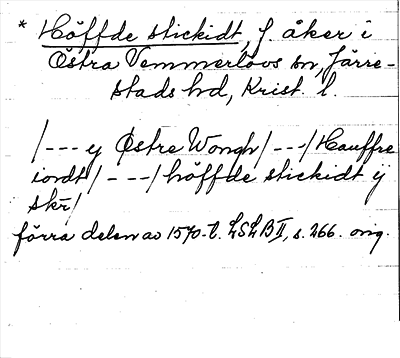 * Höffde stickidt, f. åker i
Östra Vemmerlövs sn, Järre-
stads hd, Krist. l.
/--- y Østre Wongh/---/Hauffre
iordt/---/höffde stickidt ij
skr/
förra delen av 1570-t. LSLB II, s. 266. orig.